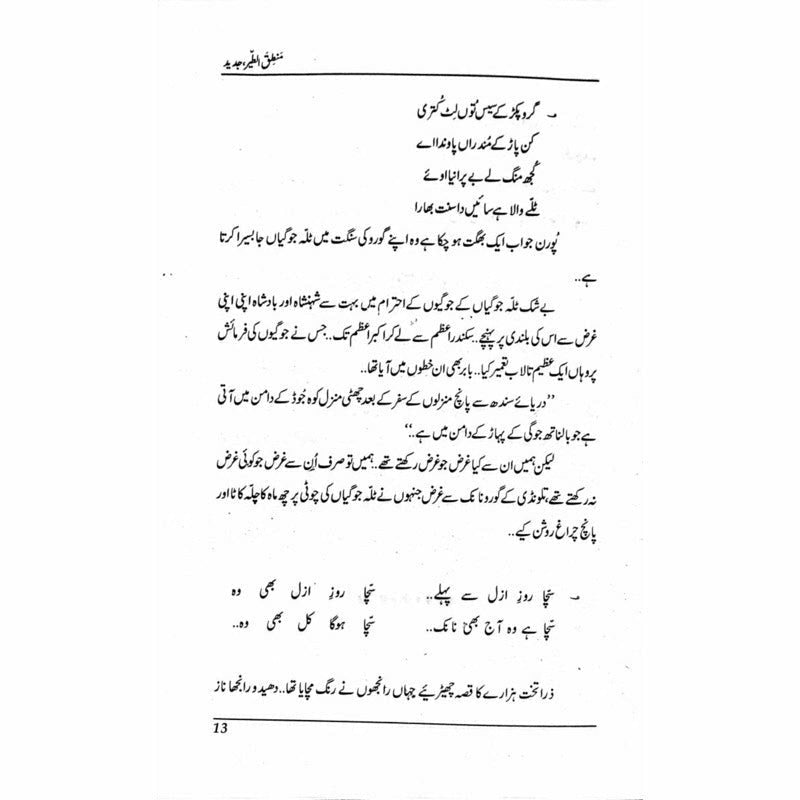 منطق الطّیر، جدید
گرو پکڑ کے سیس تُوں لِٹ کُتری
کن پاڑ کے مُندراں پاوندا اے
کُجھ منگ لے بے پرانیا اوئے
ٹلّے والا ہے سائیں داسنت بھارا
پُورن جو اب ایک بھگت ہو چکا ہے وہ اپنے گورو کی سنگت میں ٹلہ جوگیاں جا بسیرا کرتا
ہے..
بے شک ٹلہ جوگیاں کے جوگیوں کے احترام میں بہت سے شہنشاہ اور بادشاہ اپنی اپنی
غرض سے اس کی بلندی پر پہنچے.. سکندر اعظم سے لے کر اکبر اعظم تک.. جس نے جوگیوں کی فرمائش
پر وہاں ایک عظیم تالاب تعمیر کیا.. بابر بھی ان خطوں میں آیا تھا..
’’دریائے سندھ سے پانچ منزلوں کے سفر کے بعد چھٹی منزل کوہ جُوڈ کے دامن میں آتی
ہے جو بالناتھ جوگی کے پہاڑ کے دامن میں ہے..‘‘
لیکن ہمیں ان سے کیا غرض جو غرض رکھتے تھے.. ہمیں تو صرف اُن سے غرض جو کوئی غرض
نہ رکھتے تھے، تلونڈی کے گورو نانک سے غرض جنہوں نے ٹلہ جوگیاں کی چوٹی پر چھ ماہ کا چلّہ کاٹا اور
پانچ چراغ روشن کیے..
سَچّا روزِ ازل سے پہلے.. سَچّا روزِ ازل بھی وہ
سَچّا ہے وہ آج بھی نانک.. سَچّا ہوگا کل بھی وہ..
ذرا تخت ہزارے کا قصہ چھیڑیئے جہاں رانجھوں نے رنگ مچایا تھا.. دھیدو رانجھا ناز
13